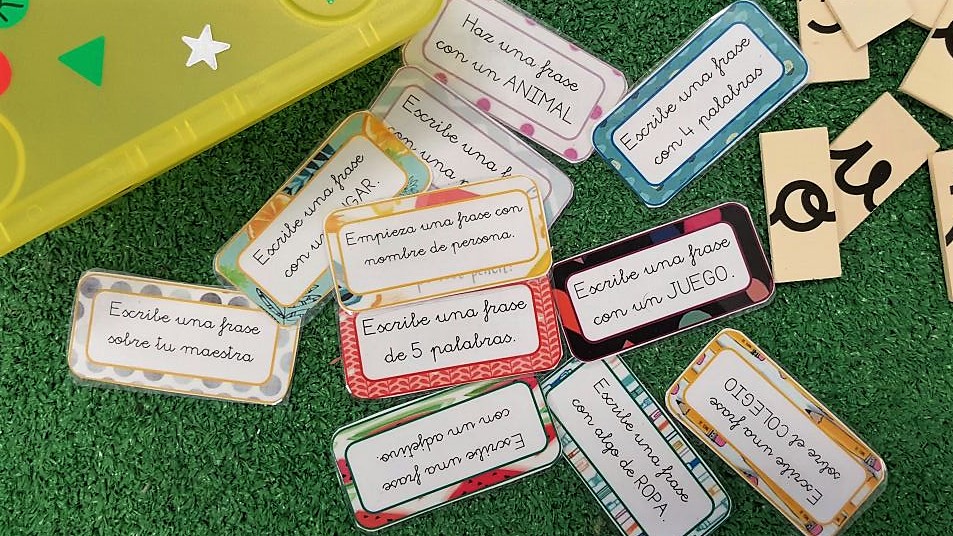 Haz una frase
con un ANIMAL
Escribe una frase
con 4 palabras
Escribe una
con una
Escribe una frase
con
Empieza una frase con
nombre de persona.
Escribe una frase
con un JUEGO.
Escribe una frase
sobre tu maestra
Escribe una frase
de 5 palabras.
Escribe una frase
con un adjetivo.
Escribe una frase
con algo de ROPA.
Escribe una frase
sobre el COLEGIO
o
v